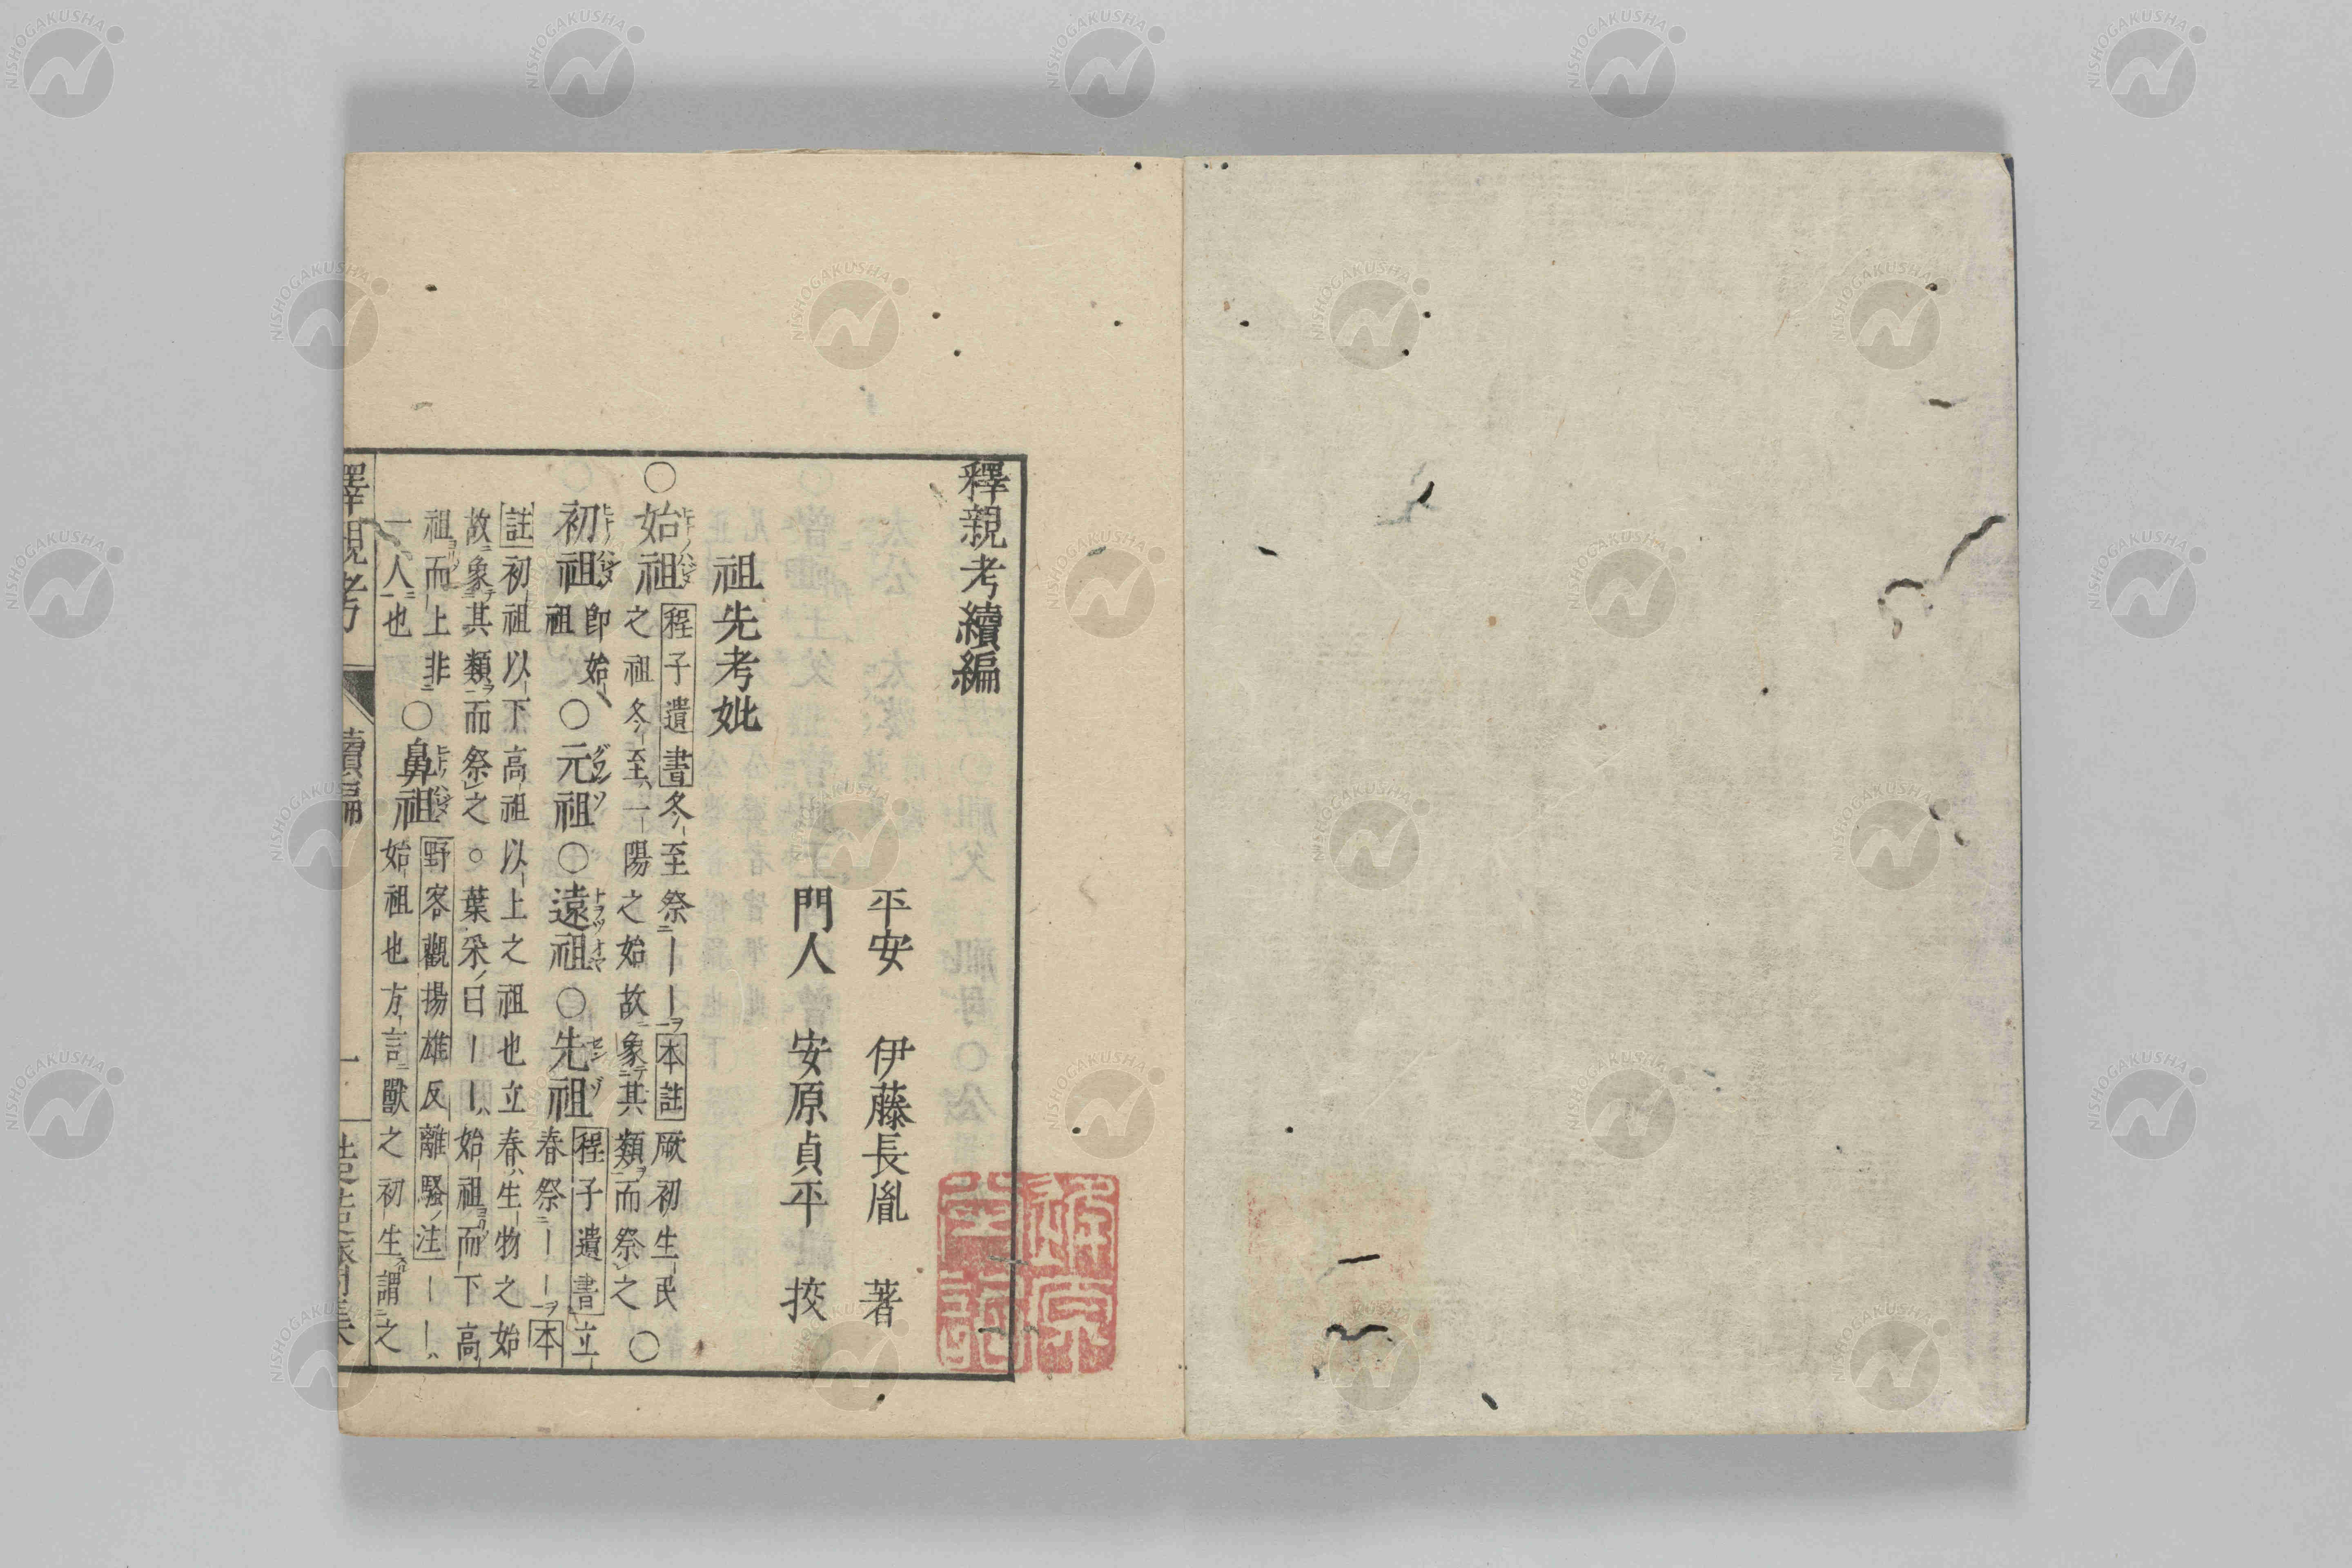 釋親考續編
平安 伊藤長胤 著
門人 安原貞平 挍
祖先考妣
○始祖 程子遺書冬至祭——本註厥初生民
之祖冬至一陽之始故象其類而祭之○
初祖 即始祖○元祖○遠祖○先祖 程子遺書立
春祭——本
註初祖以下高祖以上之祖也立春生物之始
故象其類而祭之○葉采曰——始祖而下高
祖而上非一人也○鼻祖 野客觀揚雄反離騷注——
始祖也方言獸之初生謂之
釋親考 續編 一
NISHOGAKUSHA